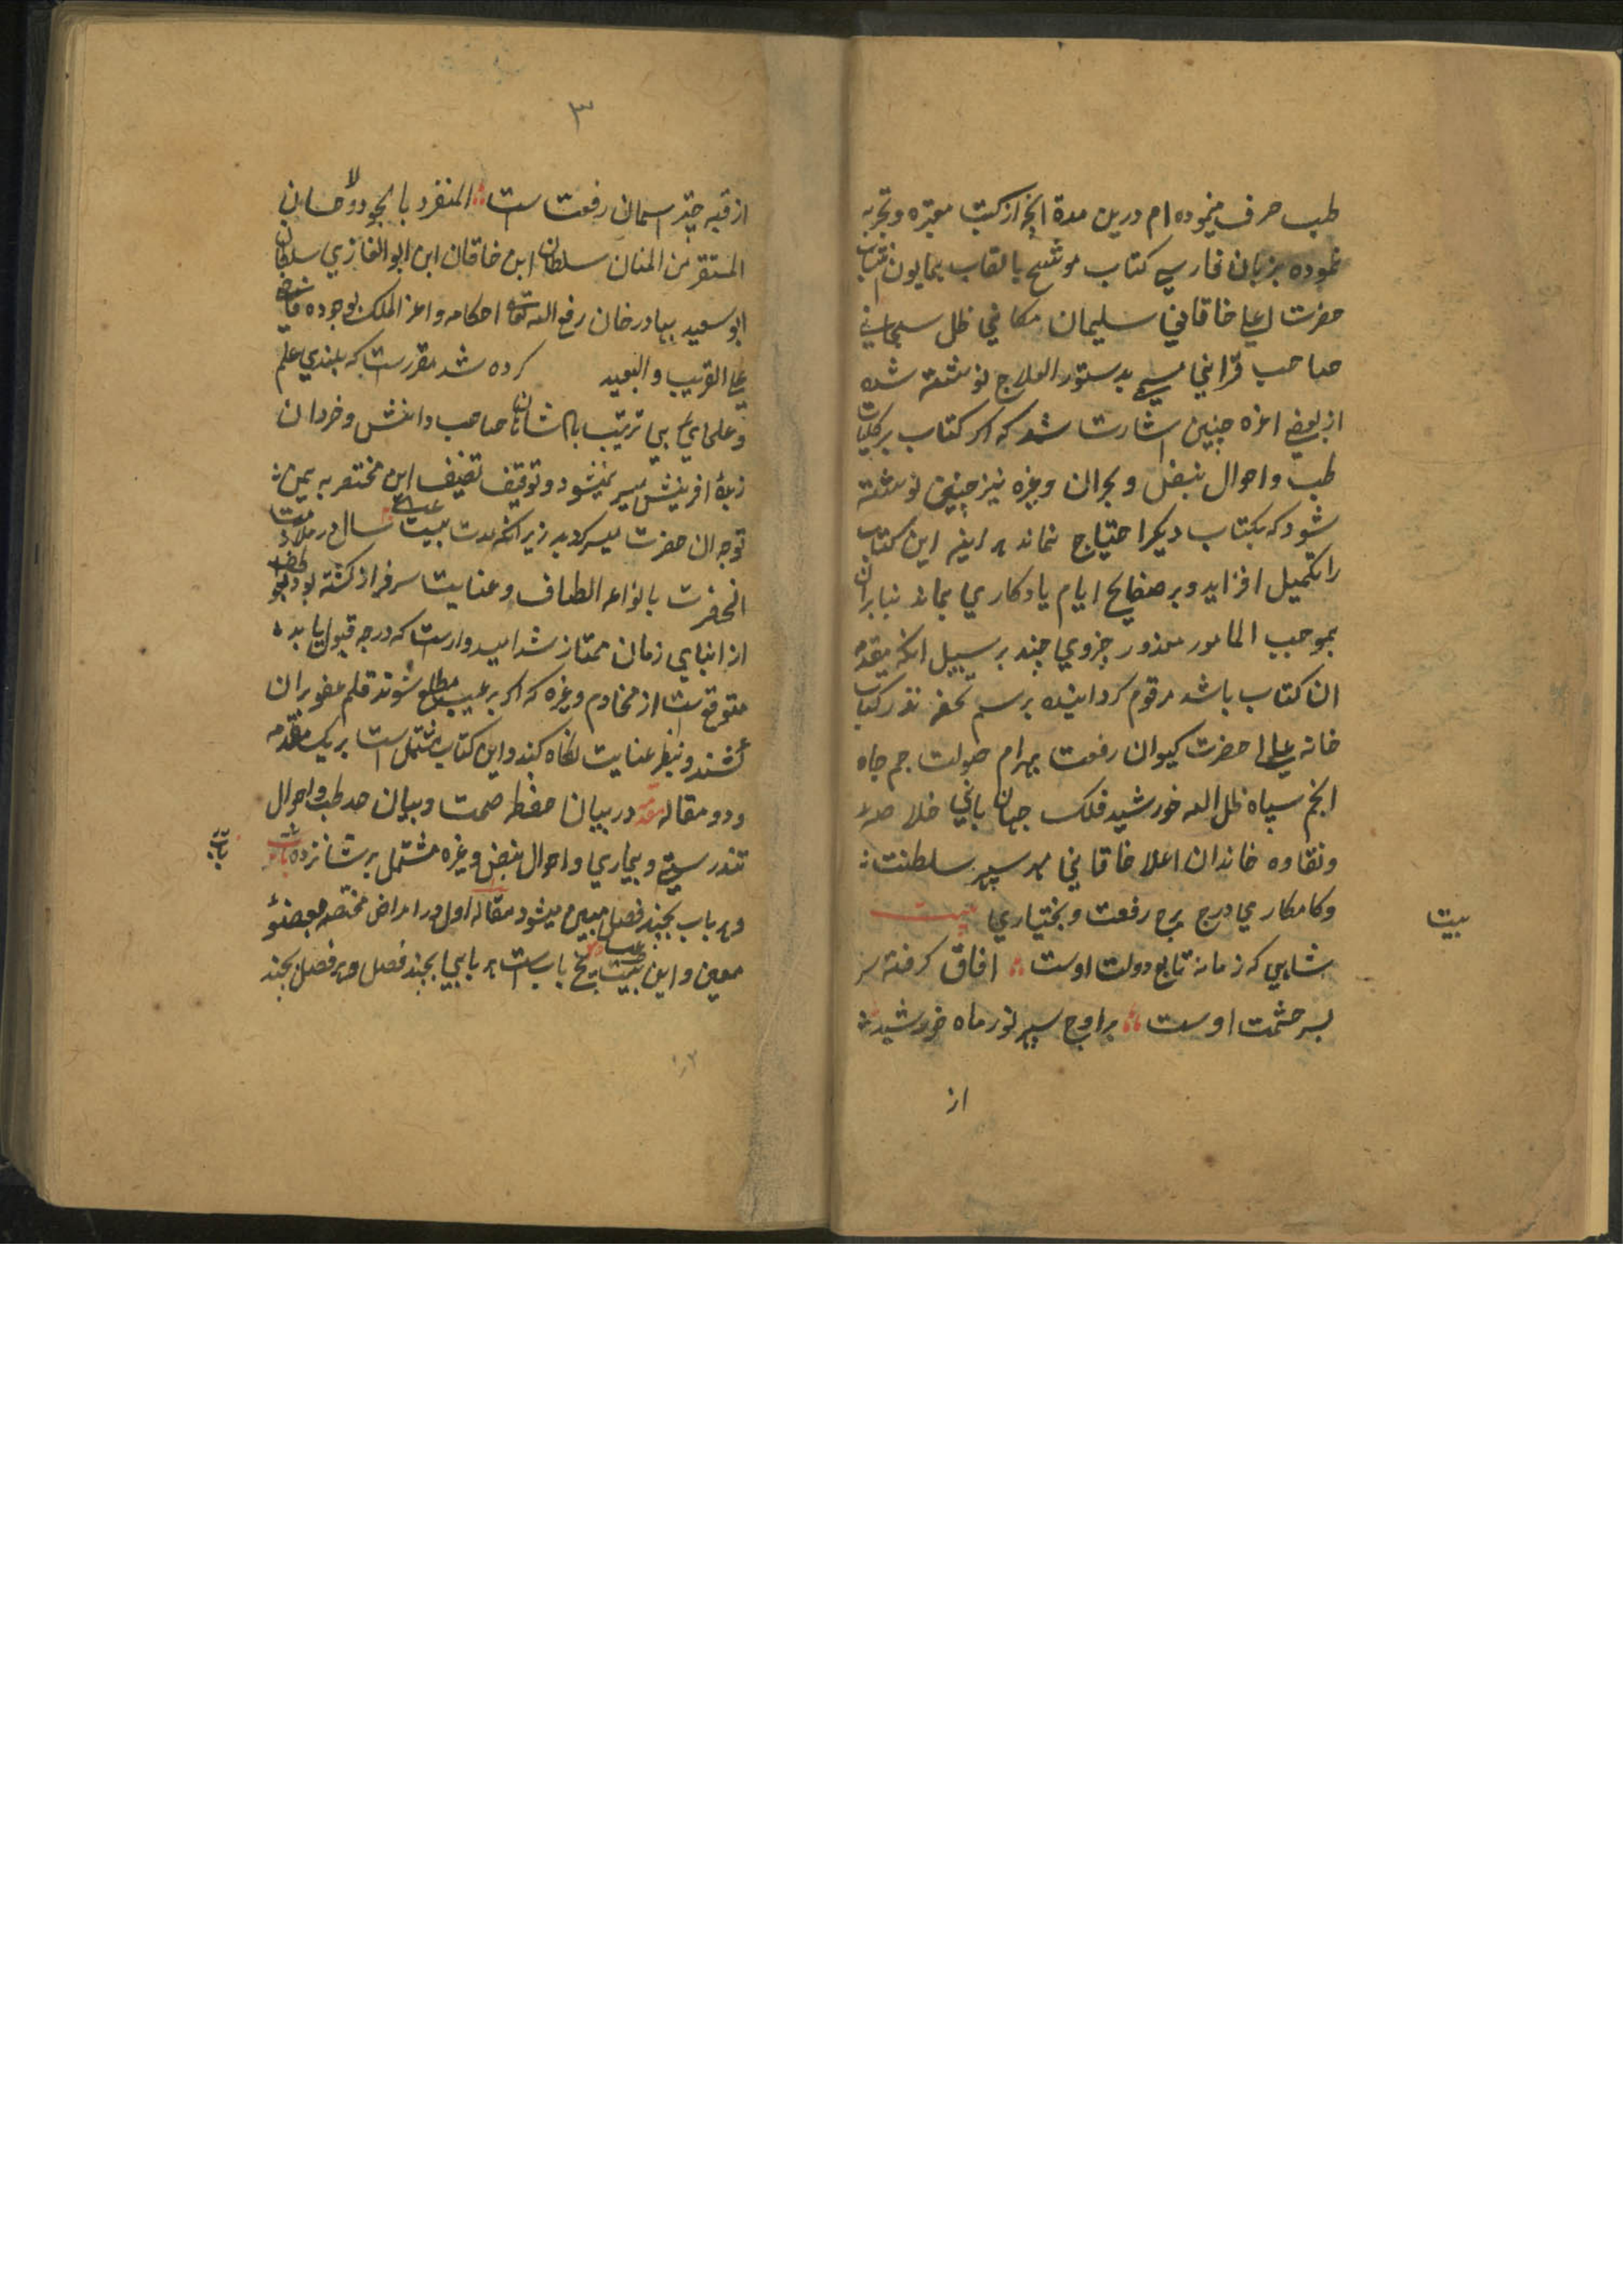 طب صرف مینموده ام درین مدة انچه از کتب معتبره و تجربه
نموده بزبان فارسی کتاب موشح بالقاب همایون
حضرت اعلی خاقانی سلیمان مکانی ظل سبحانی
صاحب قرانی مسمی بدستور العلاج نوشته شده
از بعضی اعزه چنین اشارت شد که اکر کتاب بر کلیات
طب و احوال نبض و بحران و غیره نیز چنین نوشته
شود که بکتاب دیکر احتیاج نماند هر اینه این کتاب
را تکمیل افزاید و بر صفایح ایام یادکاری بماند بنابران
بموجب المامور معذور جزوی چند بر سبیل انکه مقدمه
ان کتاب باشد مرقوم کردانیده برسم تحفه نذر کتاب
خانه عالی حضرت کیوان رفعت بهرام صولت جم جاه
انجم سپاه ظل الله خورشید فلک جهان بانی خلاصه
ونقاوه خاندان اعلا خاقانی مهر سپهر سلطنت
وکامکاری درج برج رفعت و بختیاری بیت
بیت
شاهی که زمانه تابع دولت اوست افاق کرفته سر
بسر حشمت اوست بر اوج سپهر نور ماه خورشید
از
۳
از قبه چتر اسمان رفعت است المنفرد بالجود والاحسان
المستقر من المنان سلطان ابن خاقان ابن ابو الغازی سلطان
ابو سعید بهادرخان رفع الله تعالی احکامه و اعز الملک بوجوده
علی القریب والبعید کرده شد مقررست که بلندی علم
وعلمای بی ترتیب پادشاهان صاحب دانش و خردان
زبدهٔ افرینش میسر نمیشود و توقیف تصنیف این مختصر به یمن
توجه ان حضرت میسر کردید زیرا که مدت بیست سال در ملازمت
انحضرت بانواع الطاف و عنایت سرفراز کشته بود
از ابنای زمان ممتاز شد امیدوارست که درجه قبول یابد
متوقع ست از مخادم و غیره که اکر بر عیب مطلع شوند قلم عفو بران
کشند و بنظر عنایت نکاه کنند و این کتاب مشتمل است بر یک مقدمه
و دو مقاله مقدمه در بیان حفظ صحت و بیان حد طب و احوال
تندرستی و بیماری و احوال نبض و غیره مشتمل بر شانزده باب
باب
وهر باب بچند فصل مبین میشود مقاله اول در امراض مختصه بعضو
معین و این بیست پنج باب ست هر بابی بچند فصل وهر فصل بچند